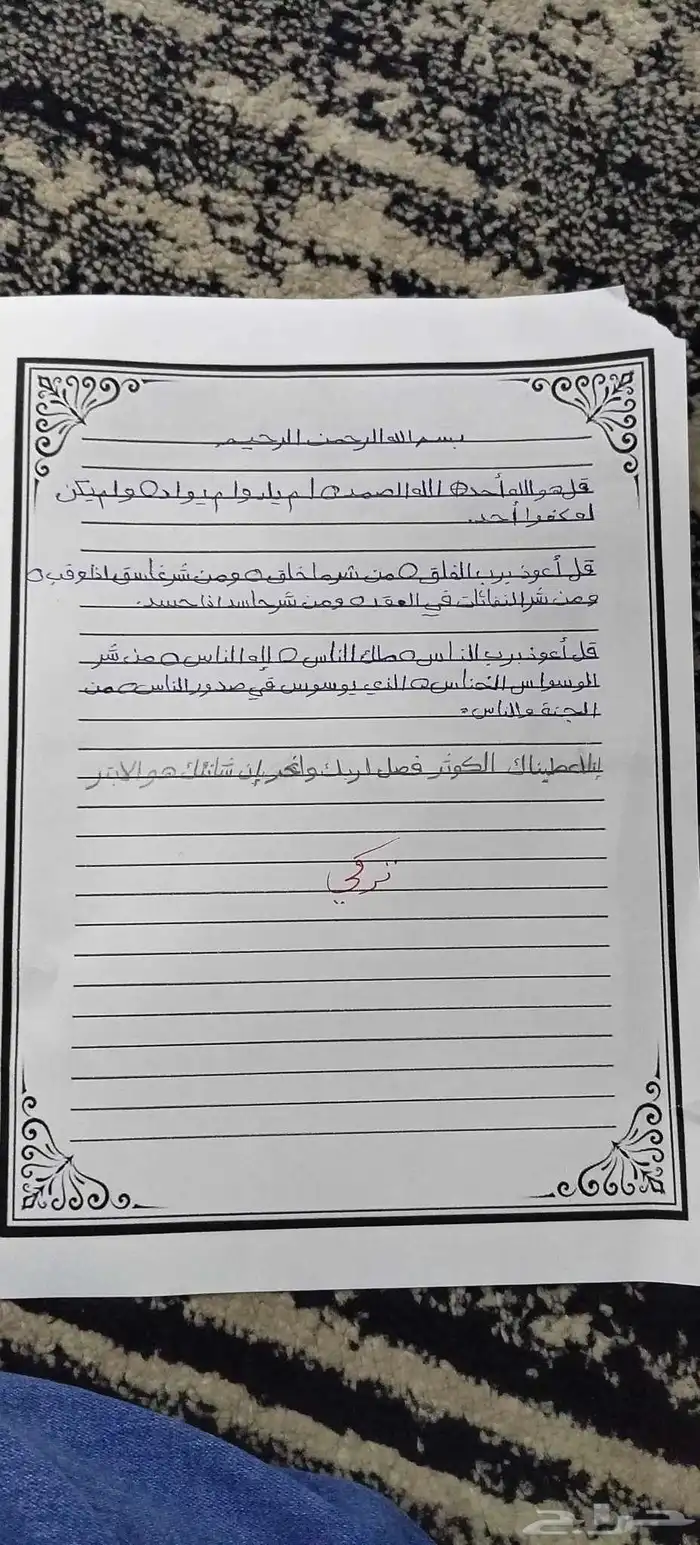 بسم الله الرحمن الرحيم
قل هو الله أحد O الله الصمد O لم يلد ولم يولد O ولم يكن
له كفوا أحد.
قل أعوذ برب الفلق O من شر ما خلق O ومن شر غاسق اذا وقب O
ومن شر النفاثات في العقد O ومن شر حاسد اذا حسد.
قل أعوذ برب الناس O ملك الناس O إله الناس O من شر
الوسواس الخناس O الذي يوسوس في صدور الناس O من
الجنة والناس.
إنا اعطيناك الكوثر فصل لربك وانحر إن شانئك هو الابتر
تركي
حراج